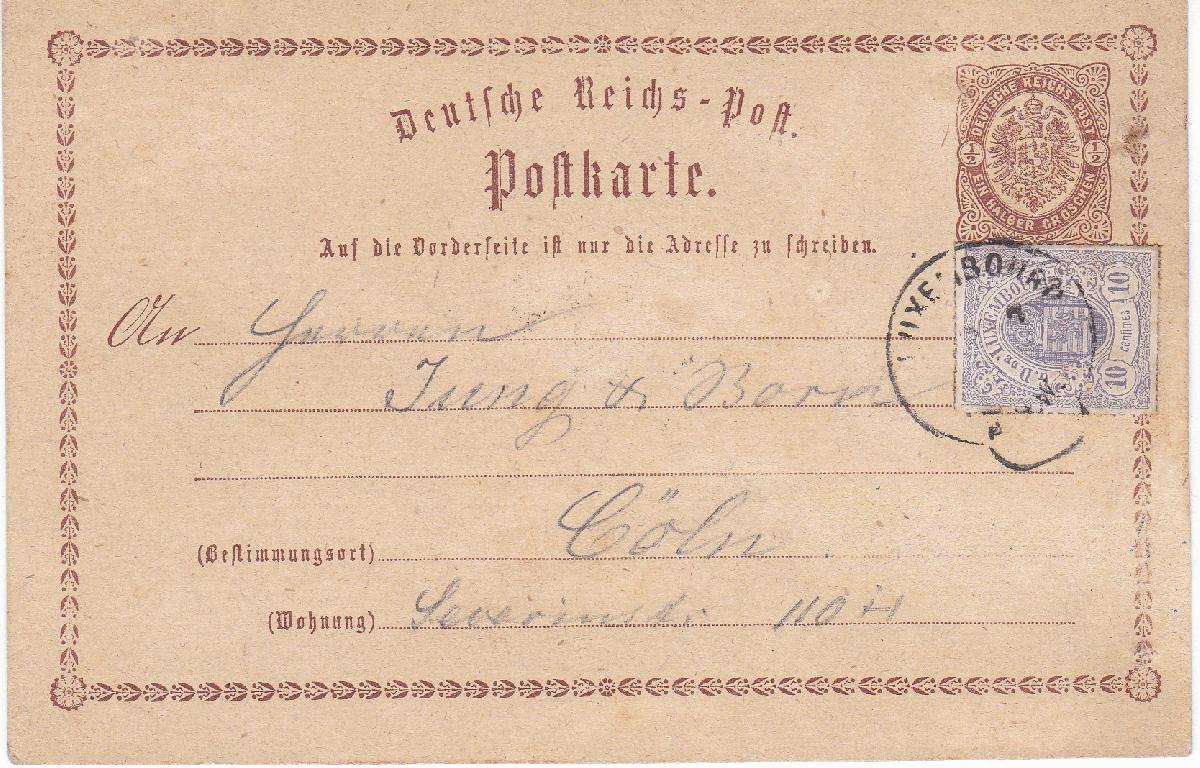 Deutsche Reichs-Post.
Postkarte.
Auf die Vorderseite ist nur die Adresse zu schreiben.
DEUTSCHE REICHS-POST
1/2 1/2
EIN HALBER GROSCHEN
LUXEMBOURG
10 centimes 10
An Herren
Jung & Born
(Bestimmungsort) Cöln
(Wohnung) Severinstr. 110